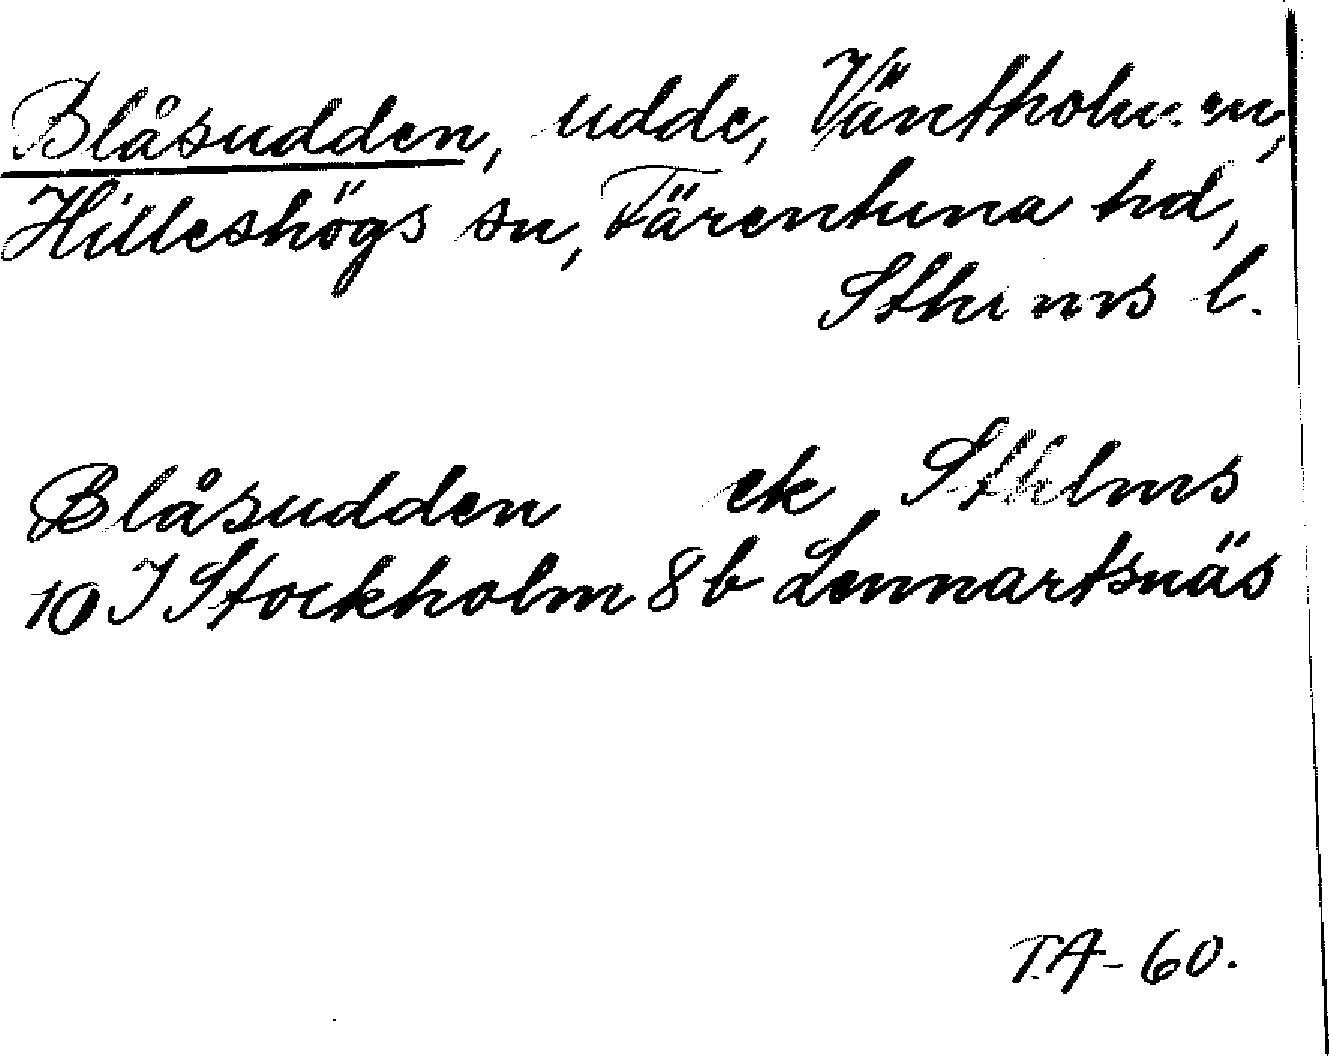 Blåsudden, udde, Väntholmen,
Hilleshögs sn, Färentuna hd,
Sthlms l.
Blåsudden ek Sthlms
10 I Stockholm 8 b Lennartsnäs
T.A-60.